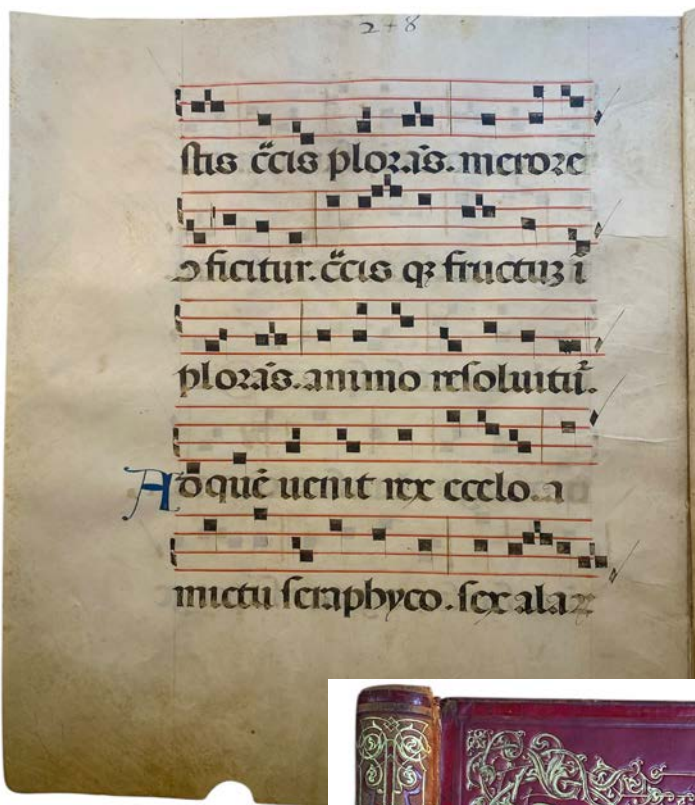 2+8
stis c̈cis plorās. merore
ↄficitur. c̈cis qꝫ fructuꝫ ī
plorās. animo resoluitů.
Ad quē uenit rex ecelo. a
mictu seraphyco. sex alaꝝ